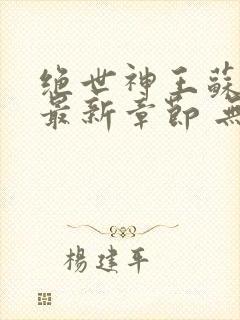 绝世神王蘇
最新章節 無
楊建平